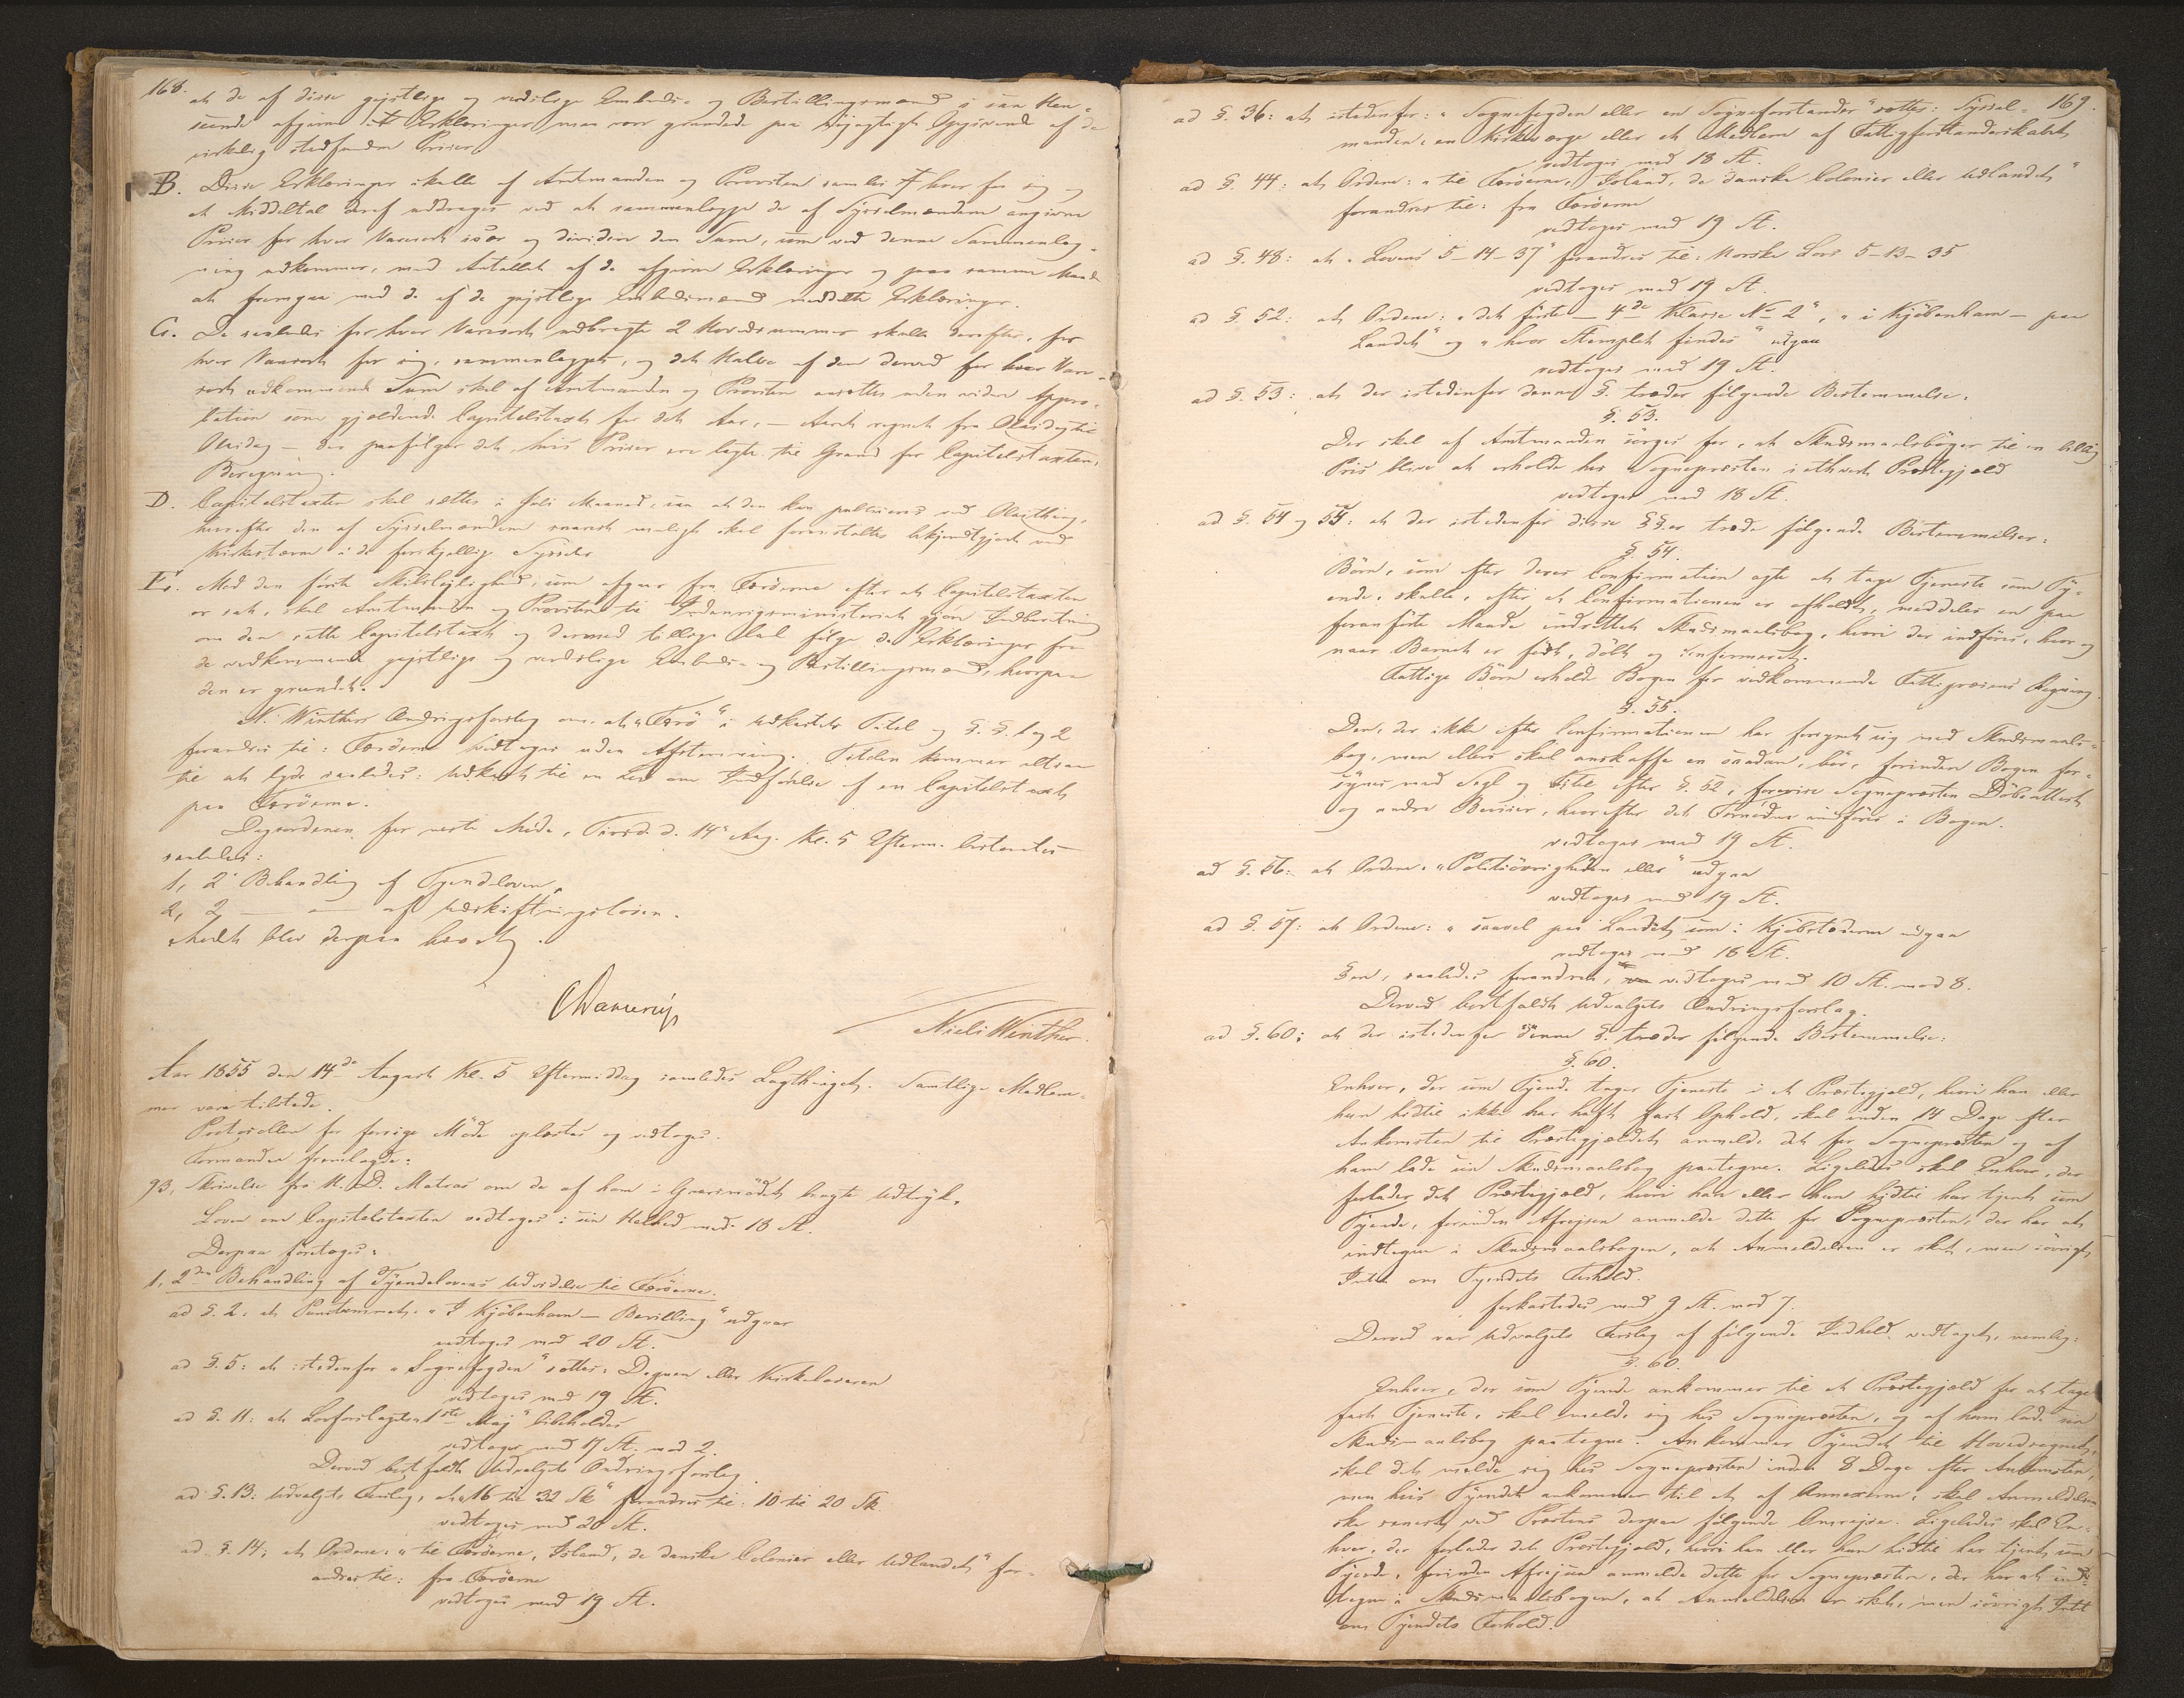 168.
at de af disse gejstlige og verdslige Embeds- og Bestillingsmænd i saa Hen-
seende afgivne Erklæringer maa være grundede paa nøjagtigt Opgivende af de
virkelig stedfundne Priser.
B. Disse Erklæringer skulle af Amtmanden og Provsten samles hver for sig og
et Middeltal deraf uddrages ved at sammenlægge de af Sysselmændene angivne
Priser for hver Varesort især og dividere den Sum, som ved denne Sammenlæg-
ning udkommer, med Antallet af de afgivne Erklæringer og paa samme Maade
at fremgaa med de af de gejstlige Embedsmænd meddelte Erklæringer.
C. De saaledes for hver Varesort udbragte 2 Hovedsummer skulle derefter, for
hver Varesort for sig, sammenlægges, og det Halve af den derved for hver Vare-
sort udkommende Sum skal af Amtmanden og Provsten ansættes uden videre Appro-
bation som gjældende Capitelstaxt for det Aar, – Aaret regnet fra Olaidag til
Olaidag – der paafølger det, hvis Priser ere lagte til Grund for Capitelstaxtens
Beregning.
D. Capitelstaxten skal sættes i Juli Maaned, saa at den kan publiceres ved Olaithing,
hvorefter den af Sysselmændene snarest muligt skal foranstaltes bekjendtgjort ved
Kirkestævne i de forskjellige Sysseler.
E. Med den første Skibslejlighed, som afgaar fra Færøerne efter at Capitelstaxten
er sat, skal Amtmanden og Provsten til Indenrigsministeriet gjøre Indberetning
om den satte Capitelstaxt og dermed tillige lade følge de Erklæringer fra
de vedkommende gejstlige og verdslige Embeds- og Bestillingsmænd, hvorpaa
den er grundet.
N. Winthers Ændringsforslag om at "Færø" i Udkastets Titel og §.§. 1 og 2
forandres til: Færøerne vedtoges uden Afstemning. Titelen kommer altsaa
til at lyde saaledes: Udkast til en Lov om Indførelse af en Capitelstaxt
paa Færøerne.
Dagsordenen for næste Møde, Tirsd. d. 14de Aug. Kl. 5 Efterm. bestemtes
saaledes:
1, 2den Behandling af Tyendeloven.
2, 2 — — af Udskiftningsloven.
Mødet blev derpaa hævet.
CDahlerup
Niels Winther.
Aar 1855 den 14de August Kl. 5 Eftermiddag samledes Lagthinget. Samtlige Medlem-
mer vare tilstede.
Protocollen for forrige Møde oplæstes og vedtoges.
Formanden fremlagde:
93, Skrivelse fra H. D. Matras om de af ham i Grærmødet brugte Udtryk.
Loven om Capitelstaxten vedtoges i sin Helhed med 18 St.
Derpaa foretoges:
1, 2den Behandling af Tyendelovens Udvidelse til Færøerne.
ad §. 2: at Punctummet: "I Kjøbenhavn – Bevilling" udgaar
vedtoges med 20 St.
ad §. 5: at istedenfor "Sognefogden" sættes: Degnen eller Kirkelæseren
vedtoges med 19 St.
ad §. 11: at Lovforslagets "1ste Maj" bibeholdes
vedtoges med 17 St. mod 2.
Derved bortfaldt Udvalgets Ændringsforslag.
ad §. 13: Udvalgets Forslag, at "16 til 32 Sk" forandres til: 10 til 20 Sk.
vedtoges med 20 St.
ad §. 14: at Ordene: "til Færøerne, Island, de danske Colonier eller Udlandet" for-
andres til: fra Færøerne
vedtoges med 19 St.
169.
ad §. 36: at istedenfor: "Sognefogden eller en Sogneforstander" sættes: Syssel-
manden, en Kirkeværge eller et Medlem af Fattigforstanderskabet
vedtoges med 18 St.
ad §. 44: at Ordene: "til Færøerne, Island, de danske Colonier eller Udlandet"
forandres til: fra Færøerne
vedtoges med 19 St.
ad §. 48: at "Lovens 5–14–37" forandres til: Norske Lovs 5–13–35
vedtoges med 19 St.
ad §. 52: at Ordene: "det første – 4de Klasse No 2", "i Kjøbenhavn – paa
Landet" og "hvor Stemplet findes" udgaa
vedtoges med 19 St.
ad §. 53: at der istedenfor denne §. træder følgende Bestemmelse:
§. 53.
Der skal af Amtmanden sørges for, at Skudsmaalsbøger til en billig
Pris blive at erholde hos Sognepræsten i ethvert Præstegjæld
vedtoges med 18 St.
ad §. 54 og 55: at der istedenfor disse §§.er træde følgende Bestemmelser:
§. 54.
Børn, som efter deres Confirmation agte at tage Tjeneste som Ty-
ende, skulle, efter at Confirmationen er afholdt, meddeles en paa
foranførte Maade indrettet Skudsmaalsbog, hvori der indføres, hvor og
naar Barnet er født, døbt og confirmeret.
Fattige Børn erholde Bogen for vedkommende Fattigvæsens Regning.
§. 55.
Den, der ikke efter Confirmationen har forsynet sig med Skudsmaals-
bog, men ellers skal anskaffe en saadan, bør, forinden Bogen for-
synes med Segl og Titel efter §. 52, forevise Sognepræsten Døbeattest
og andre Beviser, hvorefter det Fornødne indføres i Bogen.
vedtoges med 19 St.
ad §. 56: at Ordene: "Politiøvrigheden eller" udgaa
vedtoges med 19 St.
ad §. 57: at Ordene: "saavel paa Landet, som i Kjøbstæderne udgaa
vedtoges med 16 St.
§en, saaledes forandret, vedtoges med 10 St. mod 8.
Derved bortfaldt Udvalgets Ændringsforslag.
ad §. 60: at der istedenfor denne §. træder følgende Bestemmelse:
§. 60.
Enhver, der som Tyende tager Tjeneste i et Præstegjæld, hvori han eller
hun hidtil ikke har havt fast Ophold, skal inden 14 Dage efter
Ankomsten til Præstegjældet anmelde det for Sognepræsten og af
ham lade sin Skudsmaalsbog paategne. Ligeledes skal Enhver, der
forlader det Præstegjæld, hvori han eller hun hidtil har tjent som
Tyende, forinden Afrejsen anmelde dette for Sognepræsten, der har at
indtegne i Skudsmaalsbogen, at Anmeldelsen er skeet, men iøvrigt
Intet om Tyendets Forhold.
forkastedes med 9 St. mod 7.
Derved var Udvalgets Forslag af følgende Indhold vedtaget, nemlig:
§. 60.
Enhver, der som Tyende ankommer til et Præstegjæld for at tage
fast Tjeneste, skal melde sig hos Sognepræsten, og af ham lade sin
Skudsmaalsbog paategne. Ankommer Tyendet til Hovedsognet,
skal det melde sig hos Sognepræsten inden 8 Dage efter Ankomsten,
men hvis Tyendet ankommer til et af Annexerne, skal Anmeldelsen
ske senest ved Præstens derpaa følgende Omrejse. Ligeledes skal En-
hver, der forlader det Præstegjæld, hvori han eller hun hidtil har tjent som
Tyende, forinden Afrejsen anmelde dette for Sognepræsten, der har at ind-
tegne i Skudsmaalsbogen, at Anmeldelsen er skeet, men iøvrigt Intet
om Tyendets Forhold.